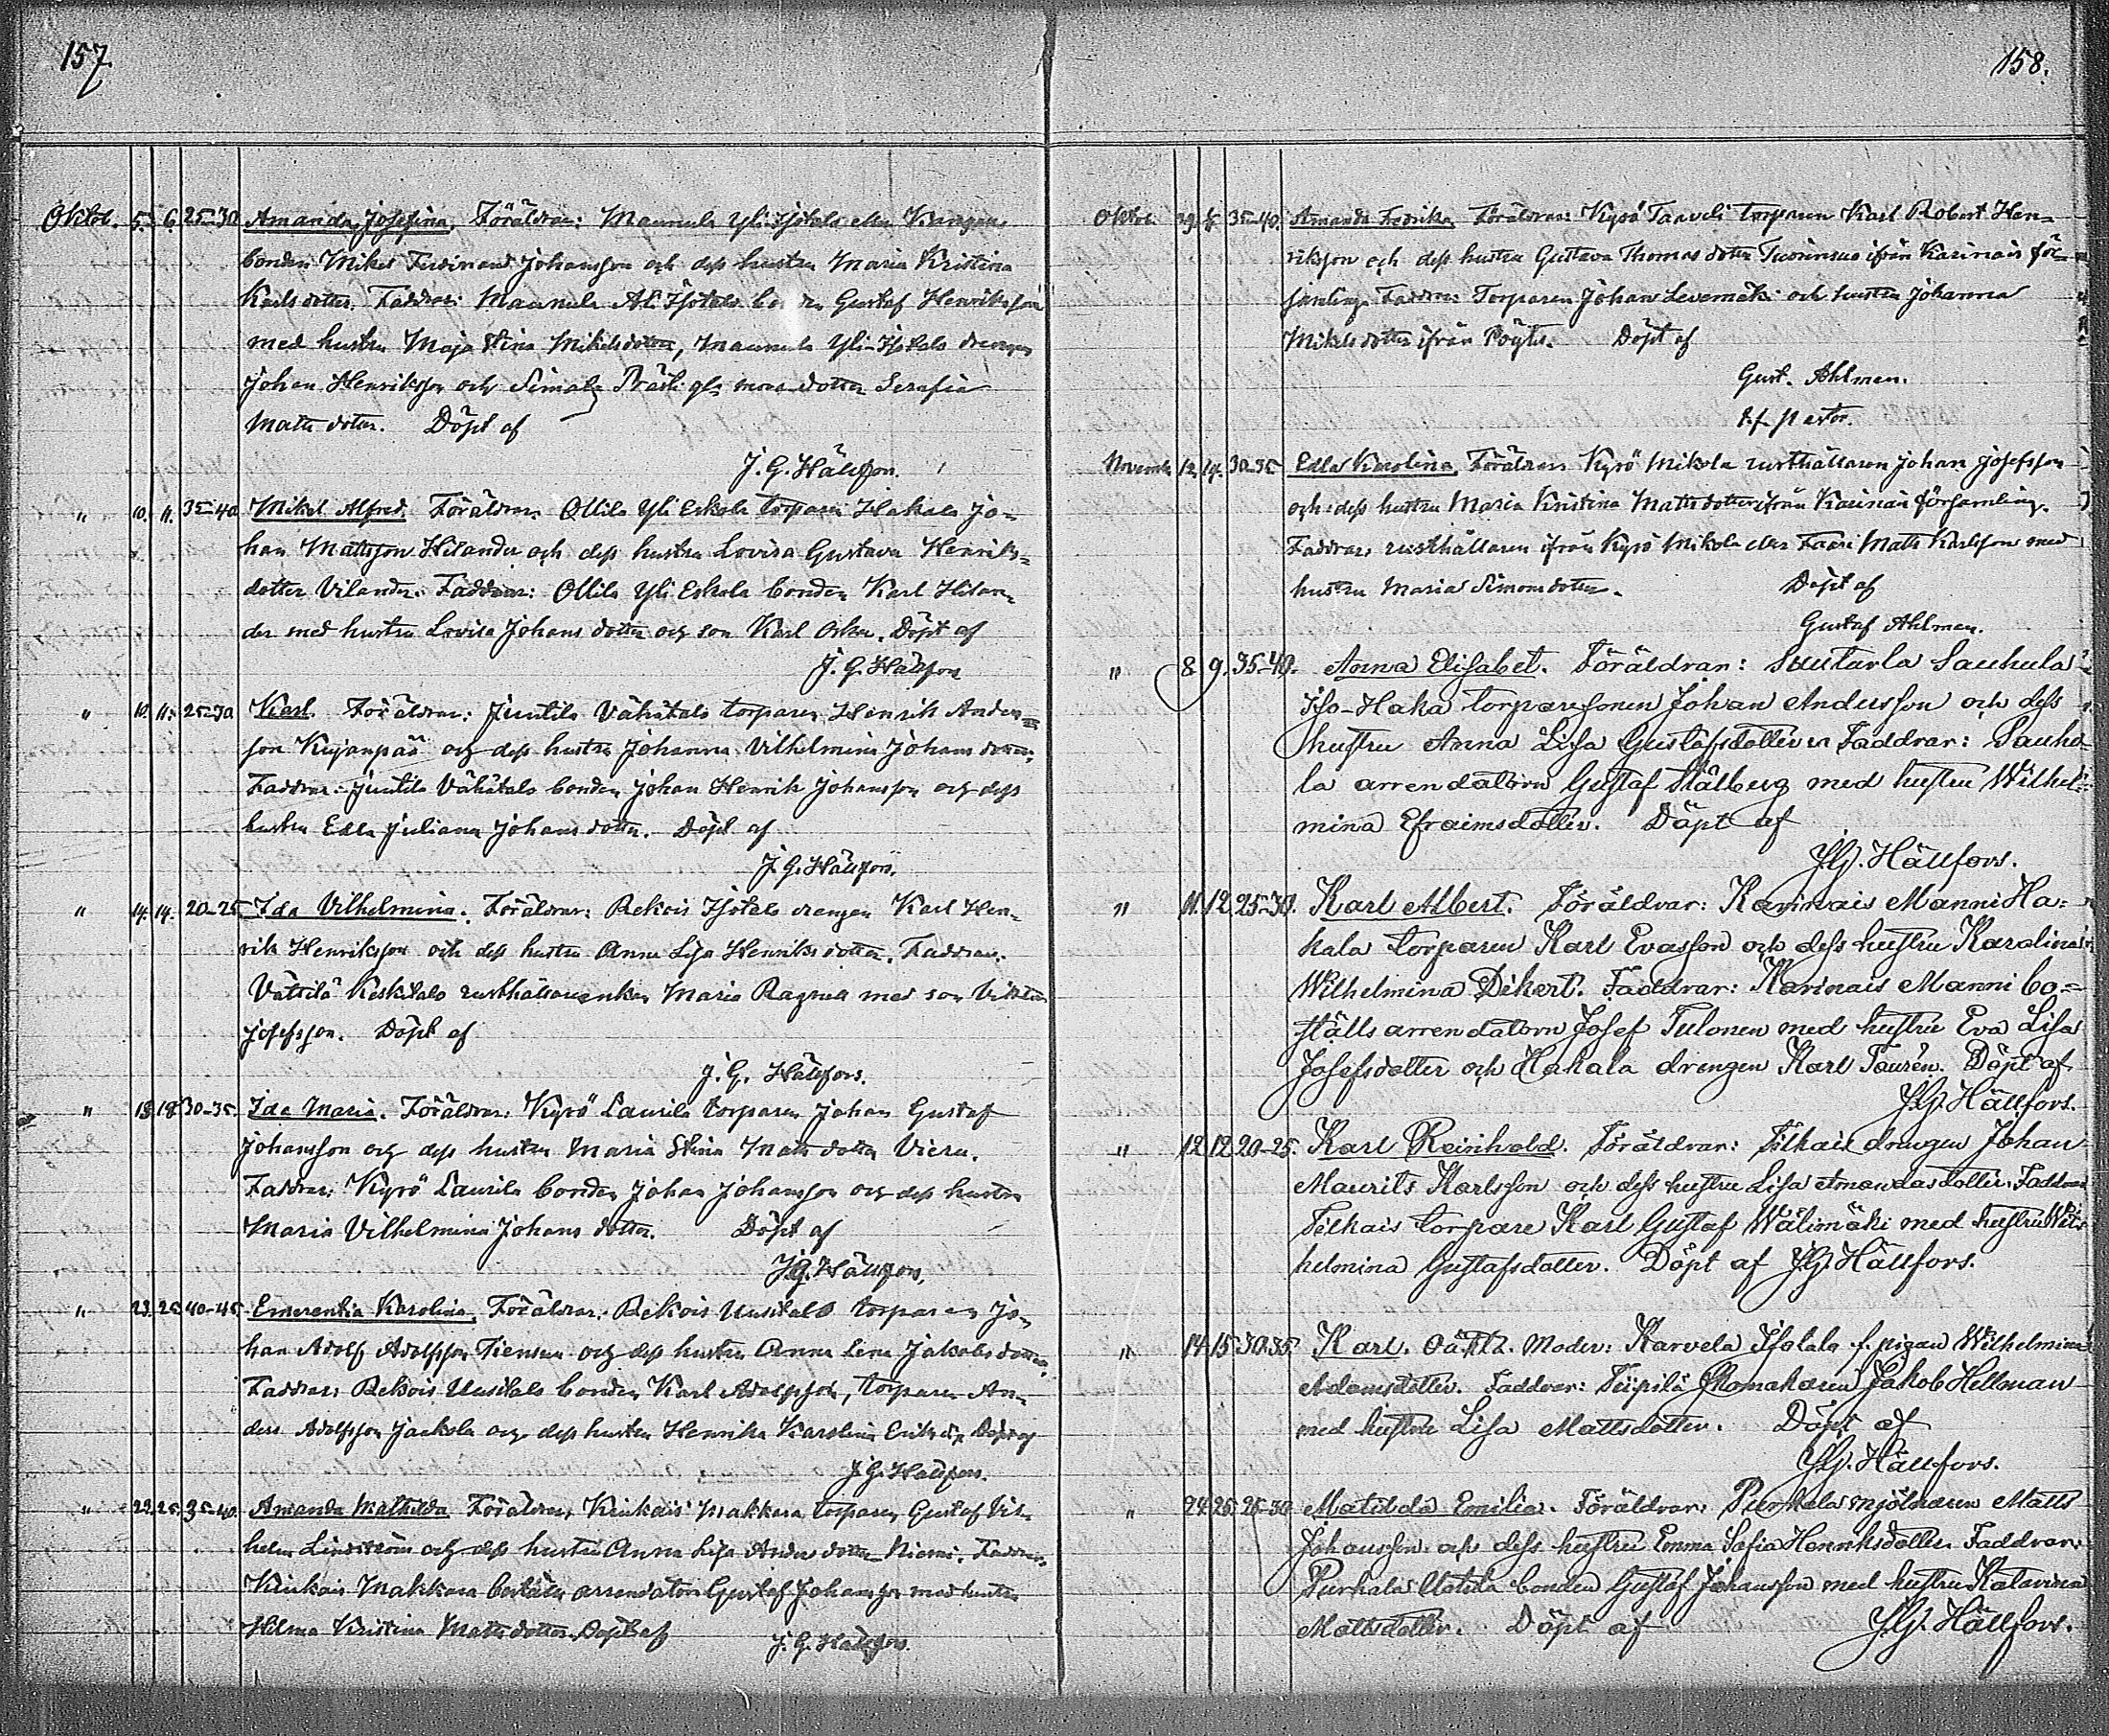 157.
Oktob. 5. 6. 25-30 Amanda Josefina. Föräldrar: Maunula Yli-Isotalo eller
bonden Mikel Ferdinand Johansson och dess hustru Maria Kristina
Karlsdotter. Faddrar: Maunula Ali-Isotalo bonden Gustaf Henriksson
med hustru Maja Stina Mikelsdotter, Maunula Yli-Isotalo drengen
Johan Henriksson och Simala dotter Serafia
Matts dotter. Döpt af
J. G. Hällfors.
" 10. 11. 35-40 Mikel Alfred. Föräldrar: Ollila Yli Eskola torparen Hakala Jo-
han Mattsson Hilander och dess hustru Lovisa Gustava Henriks-
dotter Vilander. Faddrar: Ollila Yli Eskola bonden Karl Hilan-
der med hustru Lovisa Johans dotter och son Karl Oskar. Döpt af
J. G. Hällfors
" 10. 11. 25-30 Karl. Föräldrar: Juntila Vähätalo torparen Henrik Anders-
son Kujanpää och dess hustru Johanna Vilhelmina Johans dotter.
Faddrar: Juntila Vähätalo bonden Johan Henrik Johansson och dess
hustru Edla Juliana Johans dotter. Döpt af
J. G. Hällfors.
" 14. 14. 20-25 Ida Vilhelmina. Föräldrar: Rekois Isotalo drengen Karl Hen-
rik Henriksson och dess hustru Anna Lisa Henriks dotter. Faddrar:
Vättilä Keskitalo rusthållareenkan Maria Ragnell med son Viktor
Josefsson. Döpt af
J. G. Hällfors.
" 18. 18. 30-35. Ida Maria. Föräldrar: Kyrö Laurila torparen Johan Gustaf
Johansson och dess hustru Maria Stina Matts dotter Vieru.
Faddrar: Kyrö Laurila bonden Johan Johansson och dess hustru
Maria Vilhelmina Johans dotter. Döpt af
J. G. Hällfors.
" 23. 25. 40-45. Emerentia Karolina. Föräldrar: Rekois Uusitalo torparen Jo-
han Adolf Adolfsson Tiensuu och dess hustru Anna Lena Jakobs dotter.
Faddrar: Rekois Uusitalo bonden Karl Adolfsson, torparen An-
ders Adolfsson Jaakola och dess hustru Henrika Karolina Eriks dr. Döpt af
J. G. Hällfors.
" 23. 25. 35-40. Amanda Mathilda. Föräldrar: Krikais Makkara torparen Gustaf Vil-
helm Lindström och dess hustru Anna Lisa Anders dotter Niemi. Faddrar:
Krikais Makkara boställs arrendatorn Gustaf Johansson med hustru
Hilma Kristina Matts dotter. Döpt af J. G. Hällfors.
158.
Oktob. 29. 35-40. Amanda Fredrika. Föräldrar: Kyrö Taaveli torparen Karl Robert Hen-
riksson och dess hustru Gustava Thomas dotter ifrån Karinais för-
samling. Faddrar: Torparen Johan Levomäki och hustru Johanna
Mikelsdotter ifrån Pöytis. Döpt af
Gust. Ahlman.
t.f. pastor.
Novemb. 12. 14. 30-35 Edla Karolina. Föräldrar: Kyrö Mikola rusthållaren Johan Josefsson
och dess hustru Maria Kristina Mattsdotter ifrån Karinais församling.
Faddrar: rusthållaren ifrån Kyrö Mikola eller Faari Matts Karlsson med
hustru Maria Simonsdotter. Döpt af
Gustaf Ahlman.
" 8. 9. 35-40. Anna Elisabet. Föräldrar: Suutarla Sauhula
Iso-Haka torparesonen Johan Andersson och dess
hustru Anna Lisa Gustafsdotter. Faddrar: Sauhu-
la arrendatorn Gustaf Stålberg med hustru Wilhel-
mina Efraimsdotter. Döpt af
J.G. Hällfors.
" 11. 12. 25-30. Karl Albert. Föräldrar: Karinais Manni Ha-
kala torparen Karl Evasson och dess hustru Karolina
Wilhelmina Dikert. Faddrar: Karinais Manni bo-
ställs arrendatorn Josef Tulonen med hustru Eva Lisa
Josefsdotter och Hakala drengen Karl Taurén. Döpt af
J.G. Hällfors.
" 12 12 20-25. Karl Reinhold. Föräldrar: Tilkais drengen Johan
Maurits Karlsson och dess hustru Lisa Amandasdotter. Faddrar
Tilkais torpare Karl Gustaf Wälimäki med hustru Wil-
helmina Gustafsdotter. Döpt af J.G. Hällfors.
" 14 15 30-35 Karl. Oäkta. Moder: Karvela Isotalo f. pigan Wilhelmina
Adamsdotter. Faddrar: Tiipilä skomakaren Jakob Hellman
med hustru Lisa Mattsdotter. Döpt af
J.G. Hällfors.
" 24. 25. 25-30 Matilda Emilia. Föräldrar: Purhala mjölnaren Matts
Johansson och dess hustru Emma Sofia Henriksdotter. Faddrar:
Purhala Uotila bonden Gustaf Johansson med hustru Katarina
Mattsdotter. Döpt af J.G. Hällfors.